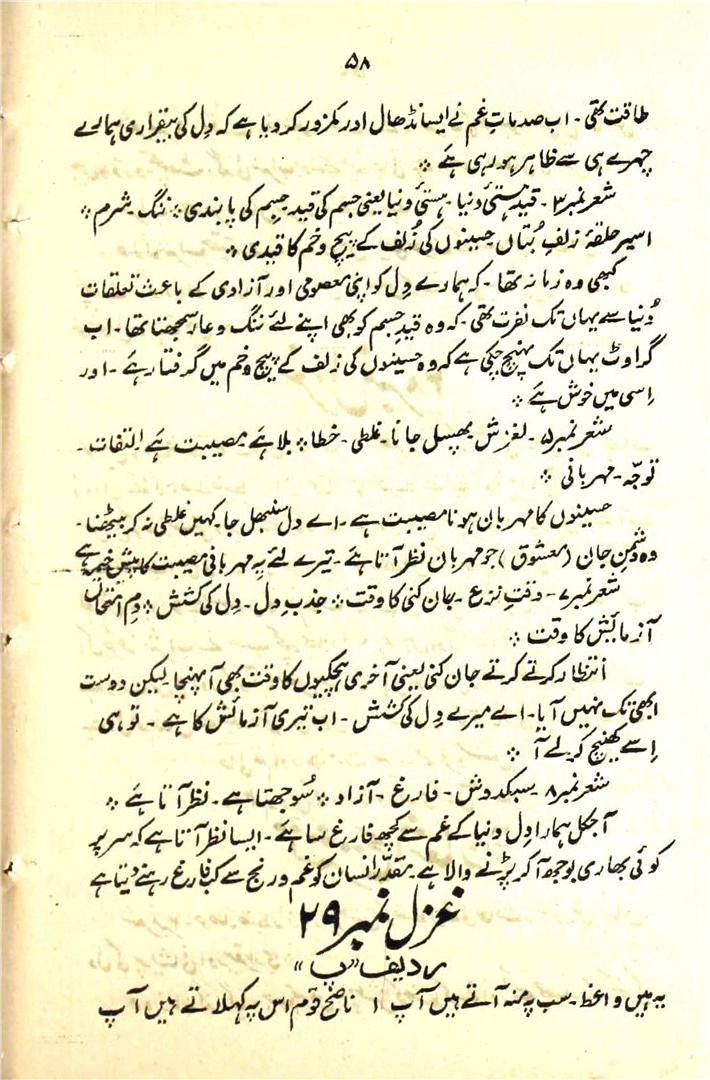 ۵۸
طاقت تھی ۔ اب صدماتِ غم نے ایسا نڈھال اور کمزور کر دیا ہے کہ دِل کی بیقراری ہمارے
چہرے ہی سے ظاہر ہو رہی ہے ⁘
شعر نمبر ۳ ۔ قیدِ ہستیٔ دنیا ۔ ہستیٔ دنیا یعنی جسم کی قید ۔ جسم کی پابندی ⁘ ننگ ۔ شرم ⁘
اسیرِ حلقۂ زلفِ بُتاں حسینوں کی زُلف کے پیچ و خم کا قیدی ⁘
کبھی وہ زمانہ تھا ۔ کہ ہمارے دِل کو اپنی معصومی اور آزادی کے باعث تعلقات
دُنیا سے یہاں تک نفرت تھی ۔ کہ وہ قیدِ جسم کو بھی اپنے لئے ننگ و عار سمجھتا تھا ۔ اب
گراوٹ یہاں تک پہنچ چکی ہے کہ وہ حسینوں کی زلف کے پیچ و خم میں گرفتار ہے ۔ اور
اِسی میں خوش ہے ⁘
شعر نمبر ۵ ۔ لغزش پھسل جانا ۔ غلطی ۔ خطا ⁘ بلا ہے ۔ مصیبت ہے التفات ۔
توجّہ ۔ مہربانی ⁘
حسینوں کا مہربان ہونا مصیبت ہے ۔ اے دل سنبھل جا ۔ کہیں غلطی نہ کر بیٹھنا ۔
وہ دشمنِ جان (معشوق) جو مہربان نظر آتا ہے ۔ تیرے لئے یہ مہربانی مصیبت کا پیش خیمہ ہے
شعر نمبر ۷ ۔ وقتِ نزع ۔ جان کنی کا وقت ⁘ جذبِ دل ۔ دِل کی کشش ⁘ دمِ امتحاں
آزمائش کا وقت ⁘
انتظار کرتے کرتے جان کنی یعنی آخری ہچکیوں کا وقت بھی آ پہنچا لیکن دوست
ابھی تک نہیں آیا ۔ اے میرے دِل کی کشش ۔ اب تیری آزمائش کا ہے ۔ تو ہی
اِسے کھینچ کر لے آ ⁘
شعر نمبر ۸ سبکدوش ۔ فارغ ۔ آزاد ⁘ سُوجھتا ہے ۔ نظر آتا ہے ⁘
آجکل ہمارا دِل دنیا کے غم سے کچھ فارغ سا ہے ۔ ایسا نظر آتا ہے کہ سر پر
کوئی بھاری بوجھ آ کر پڑنے والا ہے مقدّر انسان کو غم و رنج سے کب فارغ رہنے دیتا ہے
غزل نمبر ۲۹
ردیف "پ"
یہ ہیں واعظ ۔ سب پہ منہ آتے ہیں آپ ا ناصحِ قوم اس پہ کہلاتے ہیں آپ